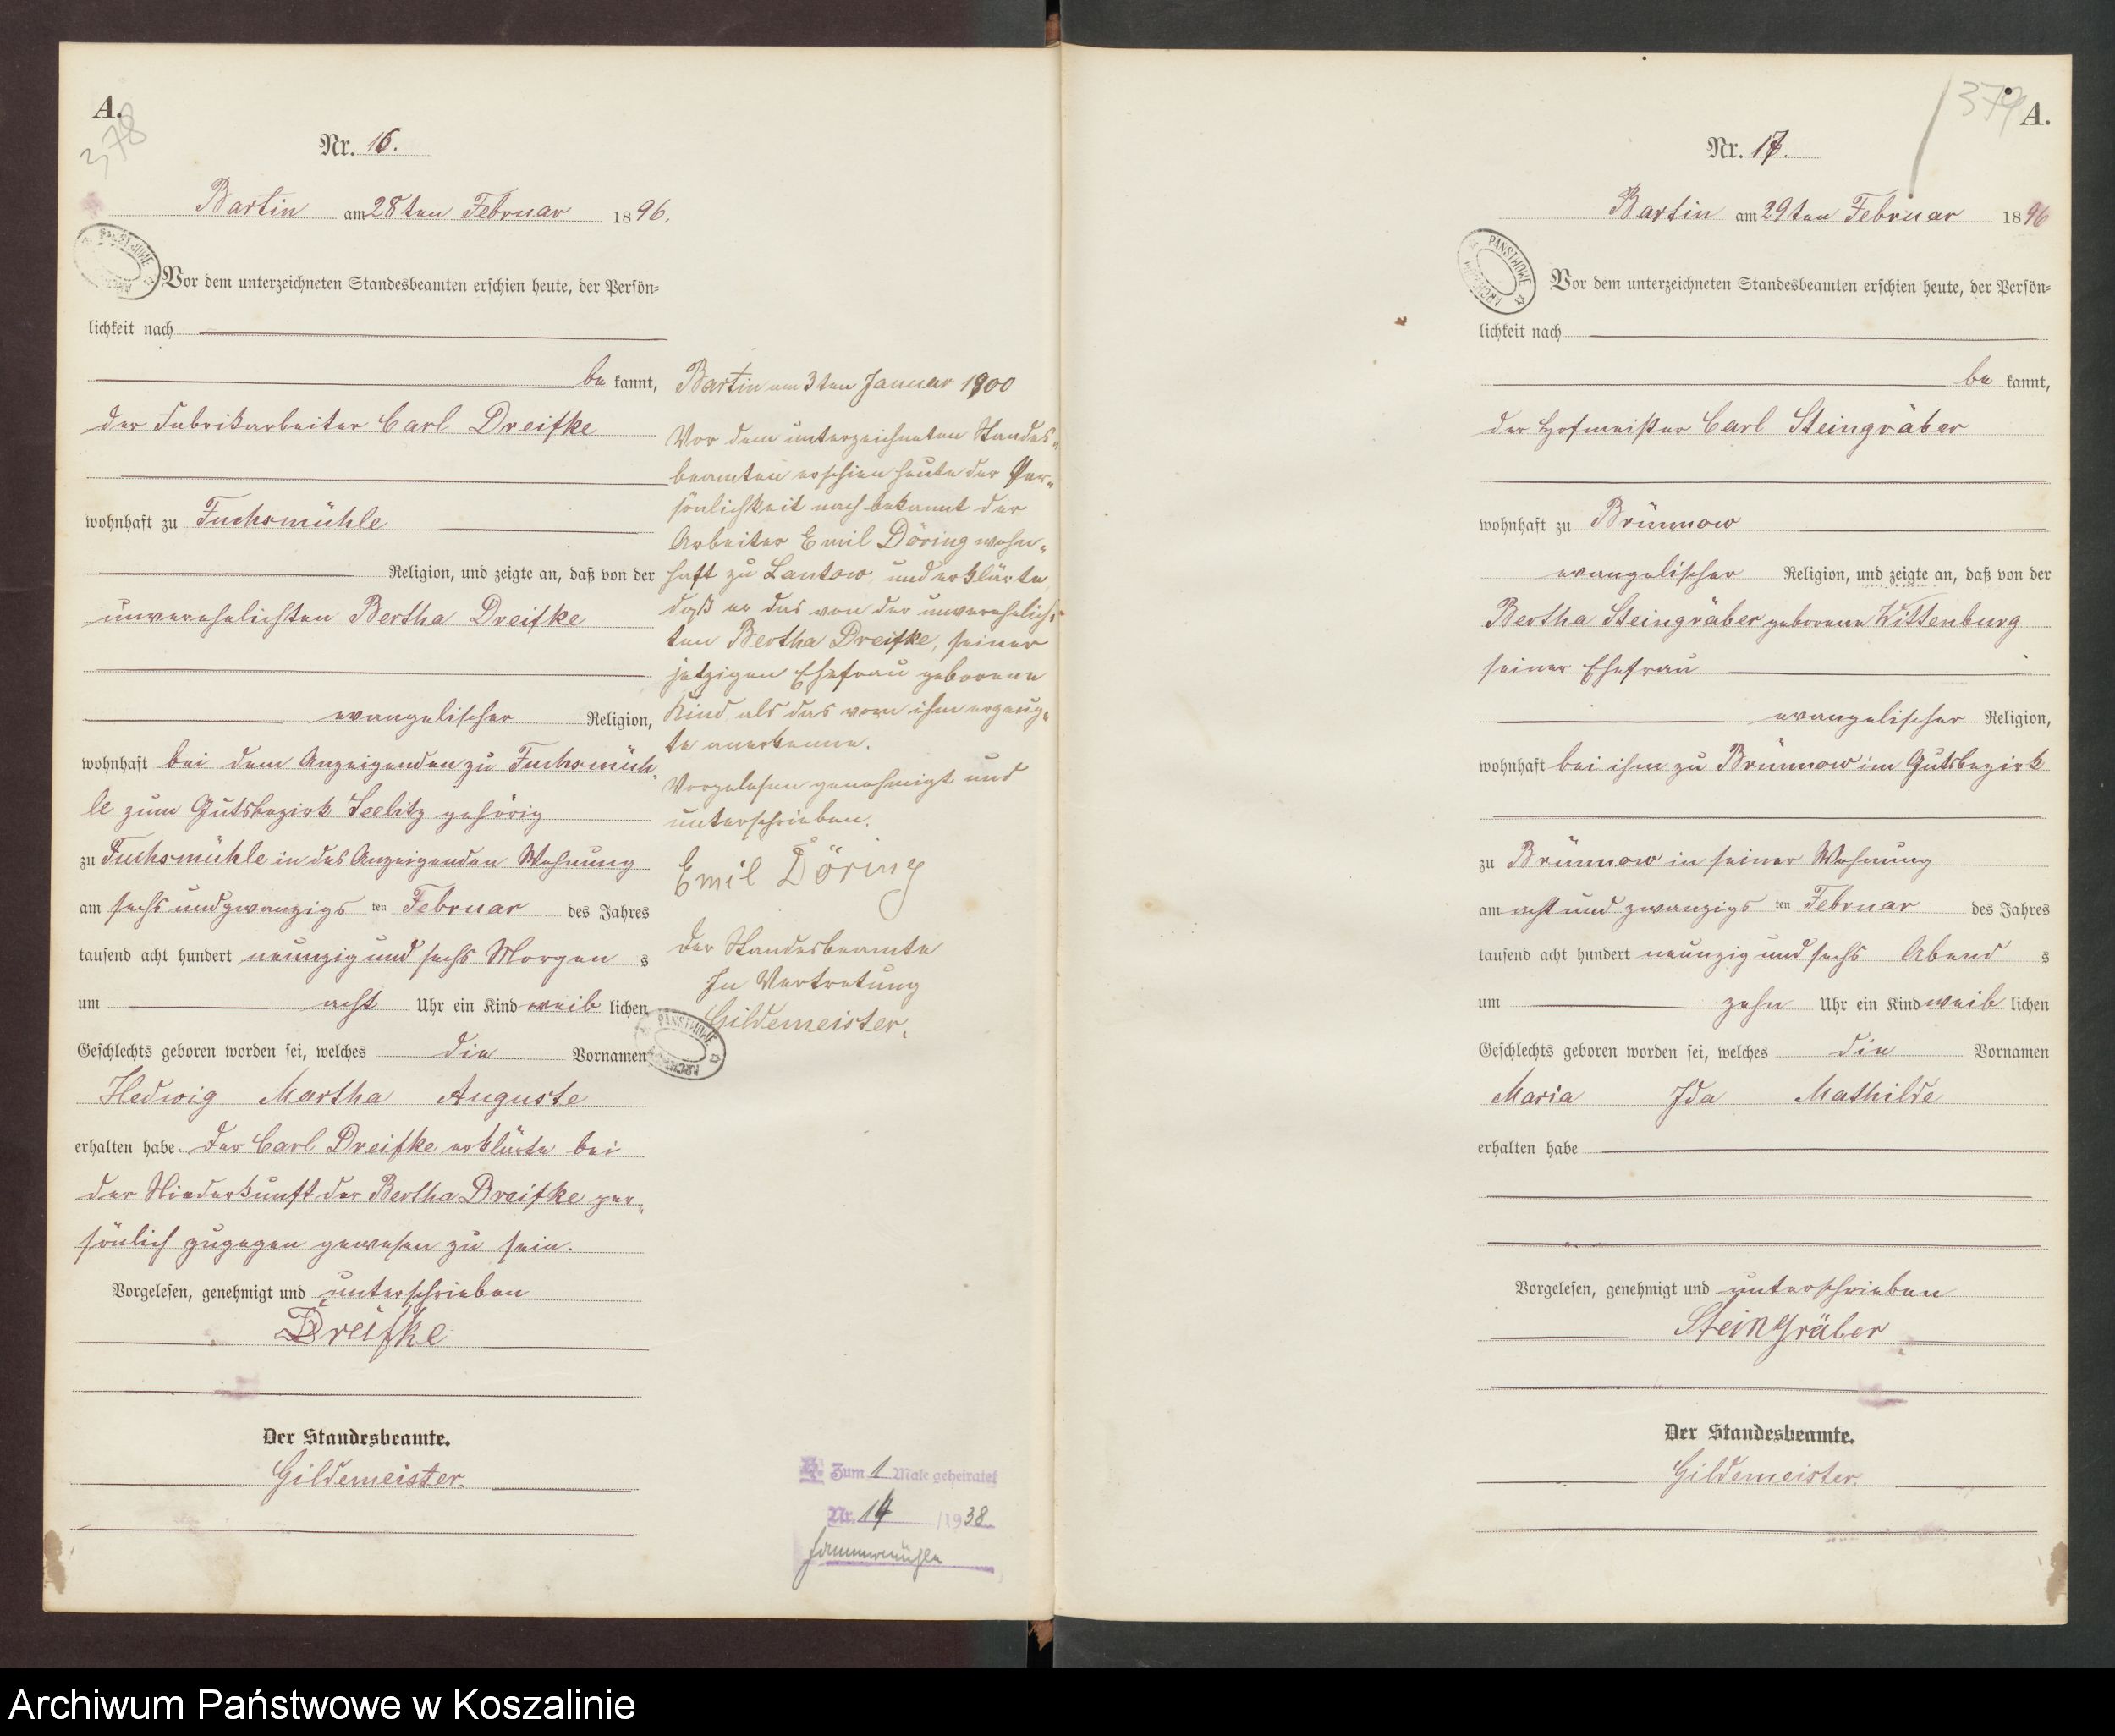 A.
378
Nr. 16.
Bartin am 28ten Februar 1896.
Vor dem unterzeichneten Standesbeamten erschien heute, der Persön=
lichkeit nach
be kannt,
der Fabrikarbeiter Carl Dreifke
wohnhaft zu Fuchsmühle
Religion, und zeigte an, daß von der
unverehelichten Bertha Dreifke
evangelischer Religion,
wohnhaft bei dem Anzeigenden zu Fuchsmüh-
le zum Gutsbezirk Seelitz gehörig
zu Fuchsmühle in des Anzeigenden Wohnung
am sechs und zwanzigs ten Februar des Jahres
tausend acht hundert neunzig und sechs Morgen s
um acht Uhr ein Kind weib lichen
Geschlechts geboren worden sei, welches die Vornamen
Hedwig Martha Auguste
erhalten habe. Der Carl Dreifke erklärte bei
der Niederkunft der Bertha Dreifke per„
sönlich zugegen gewesen zu sein.
Vorgelesen, genehmigt und unterschrieben
Dreifke
Der Standesbeamte.
Gildemeister.
Bartin am 3ten Januar 1900
Vor dem unterzeichneten Standes„
beamten erschien heute der Per„
sönlichkeit nach bekannt der
Arbeiter Emil Döring wohn„
haft zu Lantow, und erklärte
daß er das von der unverehelich„
ten Bertha Dreifke, seiner
jetzigen Ehefrau geborene
Kind als das von ihm erzeug„
te anerkenne.
Vorgelesen genehmigt und
unterschrieben.
Emil Döring
Der Standesbeamte
In Vertretung
Gildemeister.
PAŃSTWOWE ARCHIWUM
Zum 1 Male geheiratet
Nr. 14 /1938
Hammermühle
379
A.
Nr. 17.
Bartin am 29ten Februar 1896
PAŃSTWOWE ARCHIWUM
Vor dem unterzeichneten Standesbeamten erschien heute, der Persön=
lichkeit nach
be kannt,
der Hofmeister Carl Steingräber
wohnhaft zu Brünnow
evangelischer Religion, und zeigte an, daß von der
Bertha Steingräber geborene Wittenburg
seiner Ehefrau
evangelischer Religion,
wohnhaft bei ihm zu Brünnow im Gutsbezirk
zu Brünnow in seiner Wohnung
am acht und zwanzigs ten Februar des Jahres
tausend acht hundert neunzig und sechs Abend s
um zehn Uhr ein Kind weib lichen
Geschlechts geboren worden sei, welches die Vornamen
Maria Ida Mathilde
erhalten habe
Vorgelesen, genehmigt und unterschrieben
Steingräber
Der Standesbeamte.
Gildemeister.
Archiwum Państwowe w Koszalinie